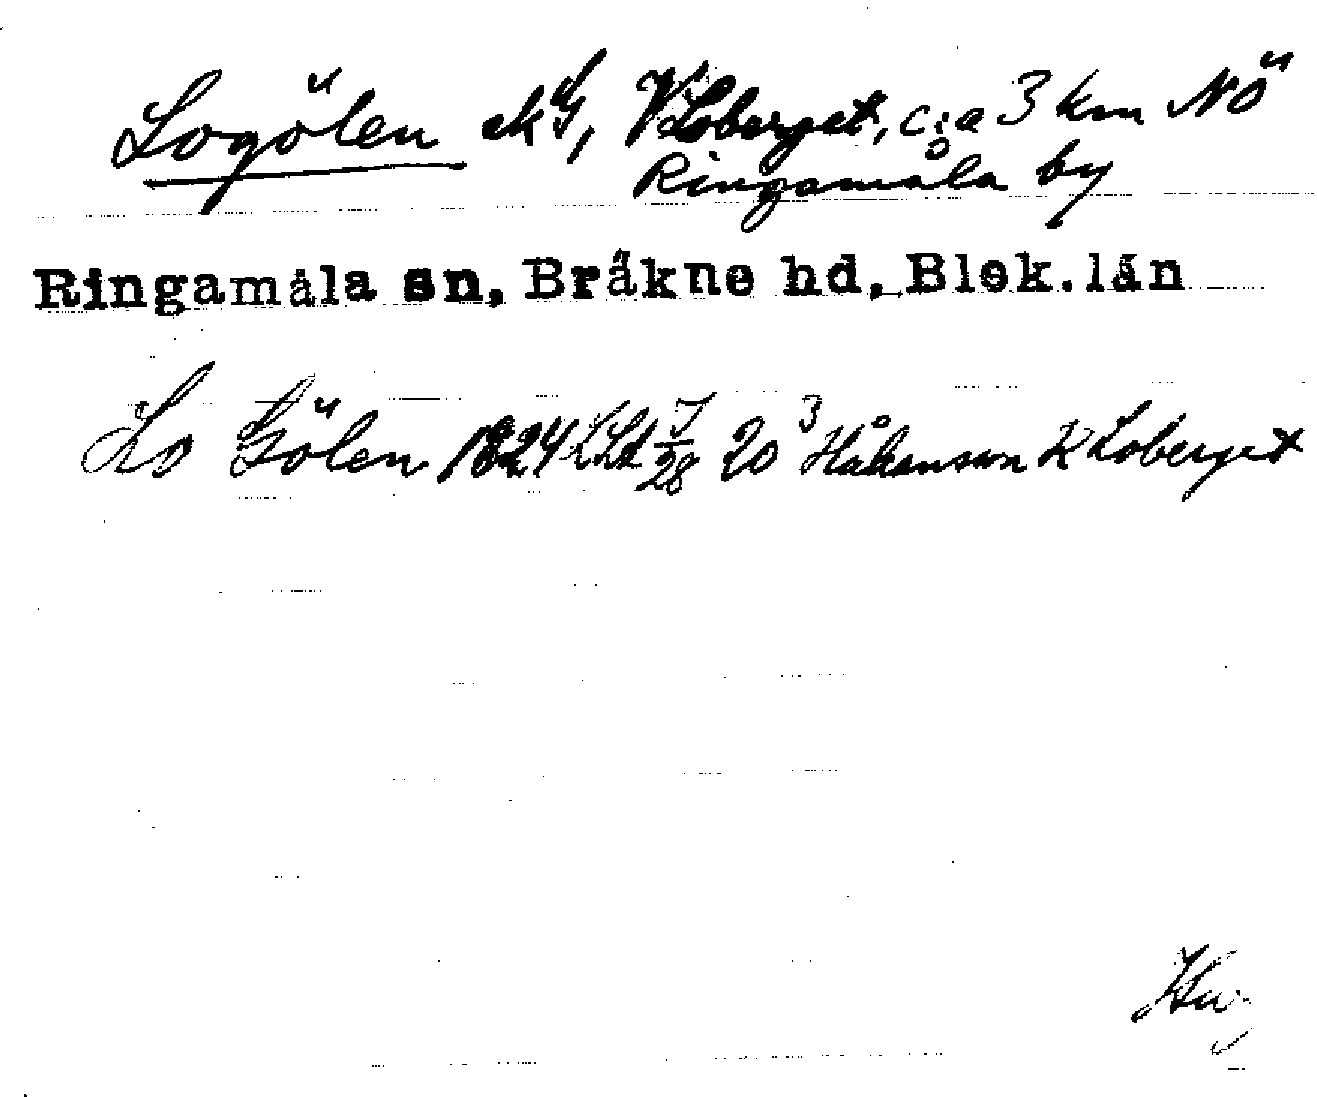 Logölen ekG, V Loberget, c:a 3 km NÖ
Ringamåla by
Ringamåla sn, Bräkne hd, Blek. län
Lo Gölen 1824 LSt J/28 20 3 Håkanson K Loberget